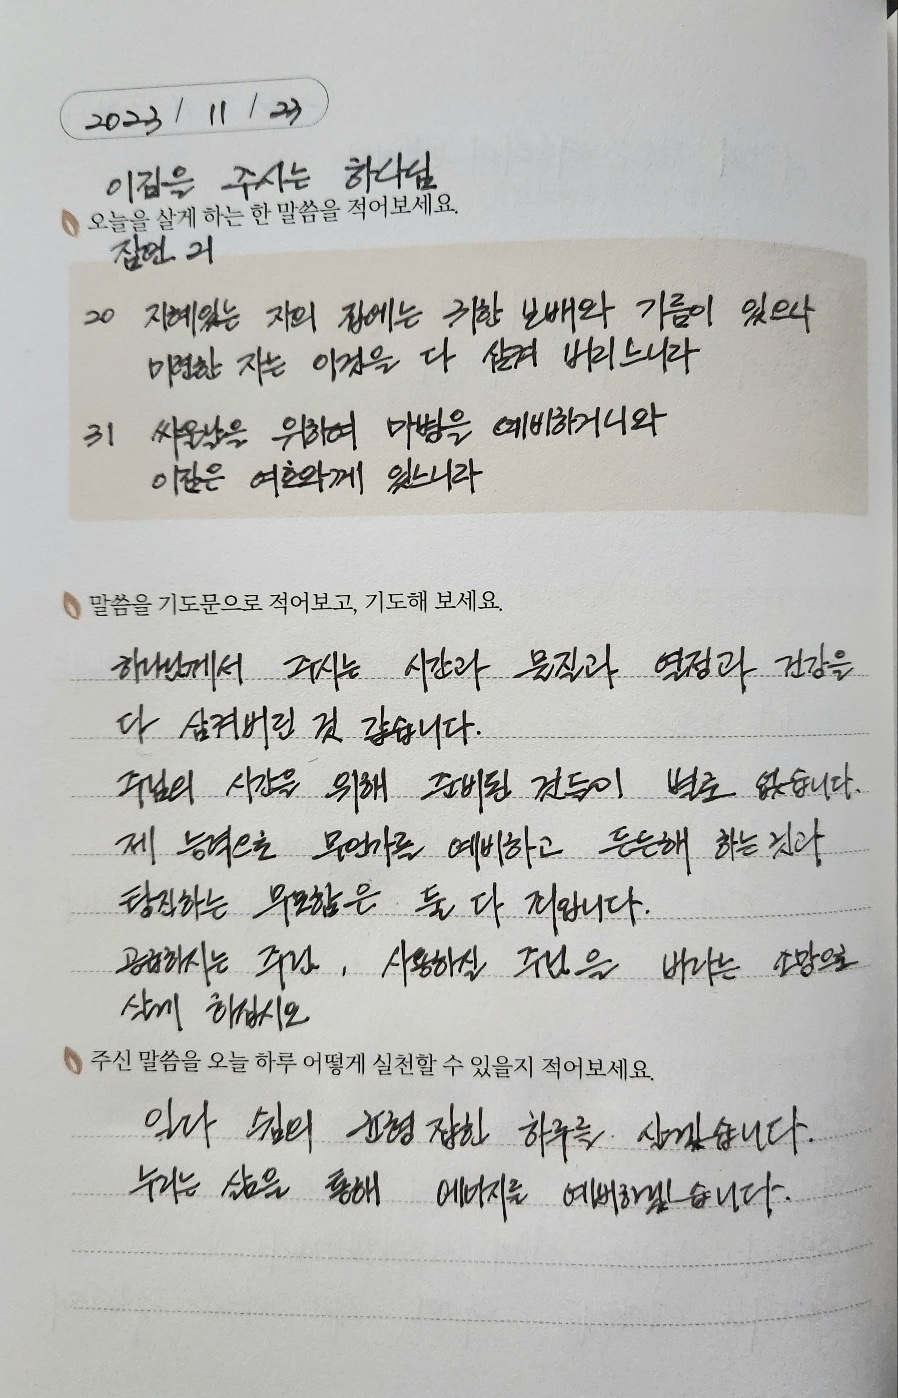 2023 / 11 / 23
이김을 주시는 하나님
오늘을 살게 하는 한 말씀을 적어보세요.
잠언 21
20 지혜있는 자의 집에는 귀한 보배와 기름이 있으나
미련한 자는 이것을 다 삼켜 버리느니라
31 싸울날을 위하여 마병을 예비하거니와
이김은 여호와께 있느니라
말씀을 기도문으로 적어보고, 기도해 보세요.
하나님께서 주시는 시간과 물질과 열정과 건강을
다 삼켜버린 것 같습니다.
주님의 시간을 위해 준비된 것들이 별로 없습니다.
제 능력으로 무언가를 예비하고 든든해 하는 것과
탕진하는 무모함은 둘 다 죄입니다.
공급하시는 주님, 사용하실 주님을 바라는 소망으로
살게 하십시오
주신 말씀을 오늘 하루 어떻게 실천할 수 있을지 적어보세요.
일다 쉼의 균형 잡힌 하루를 살겠습니다.
누리는 삶을 통해 에너지를 예비하겠습니다.